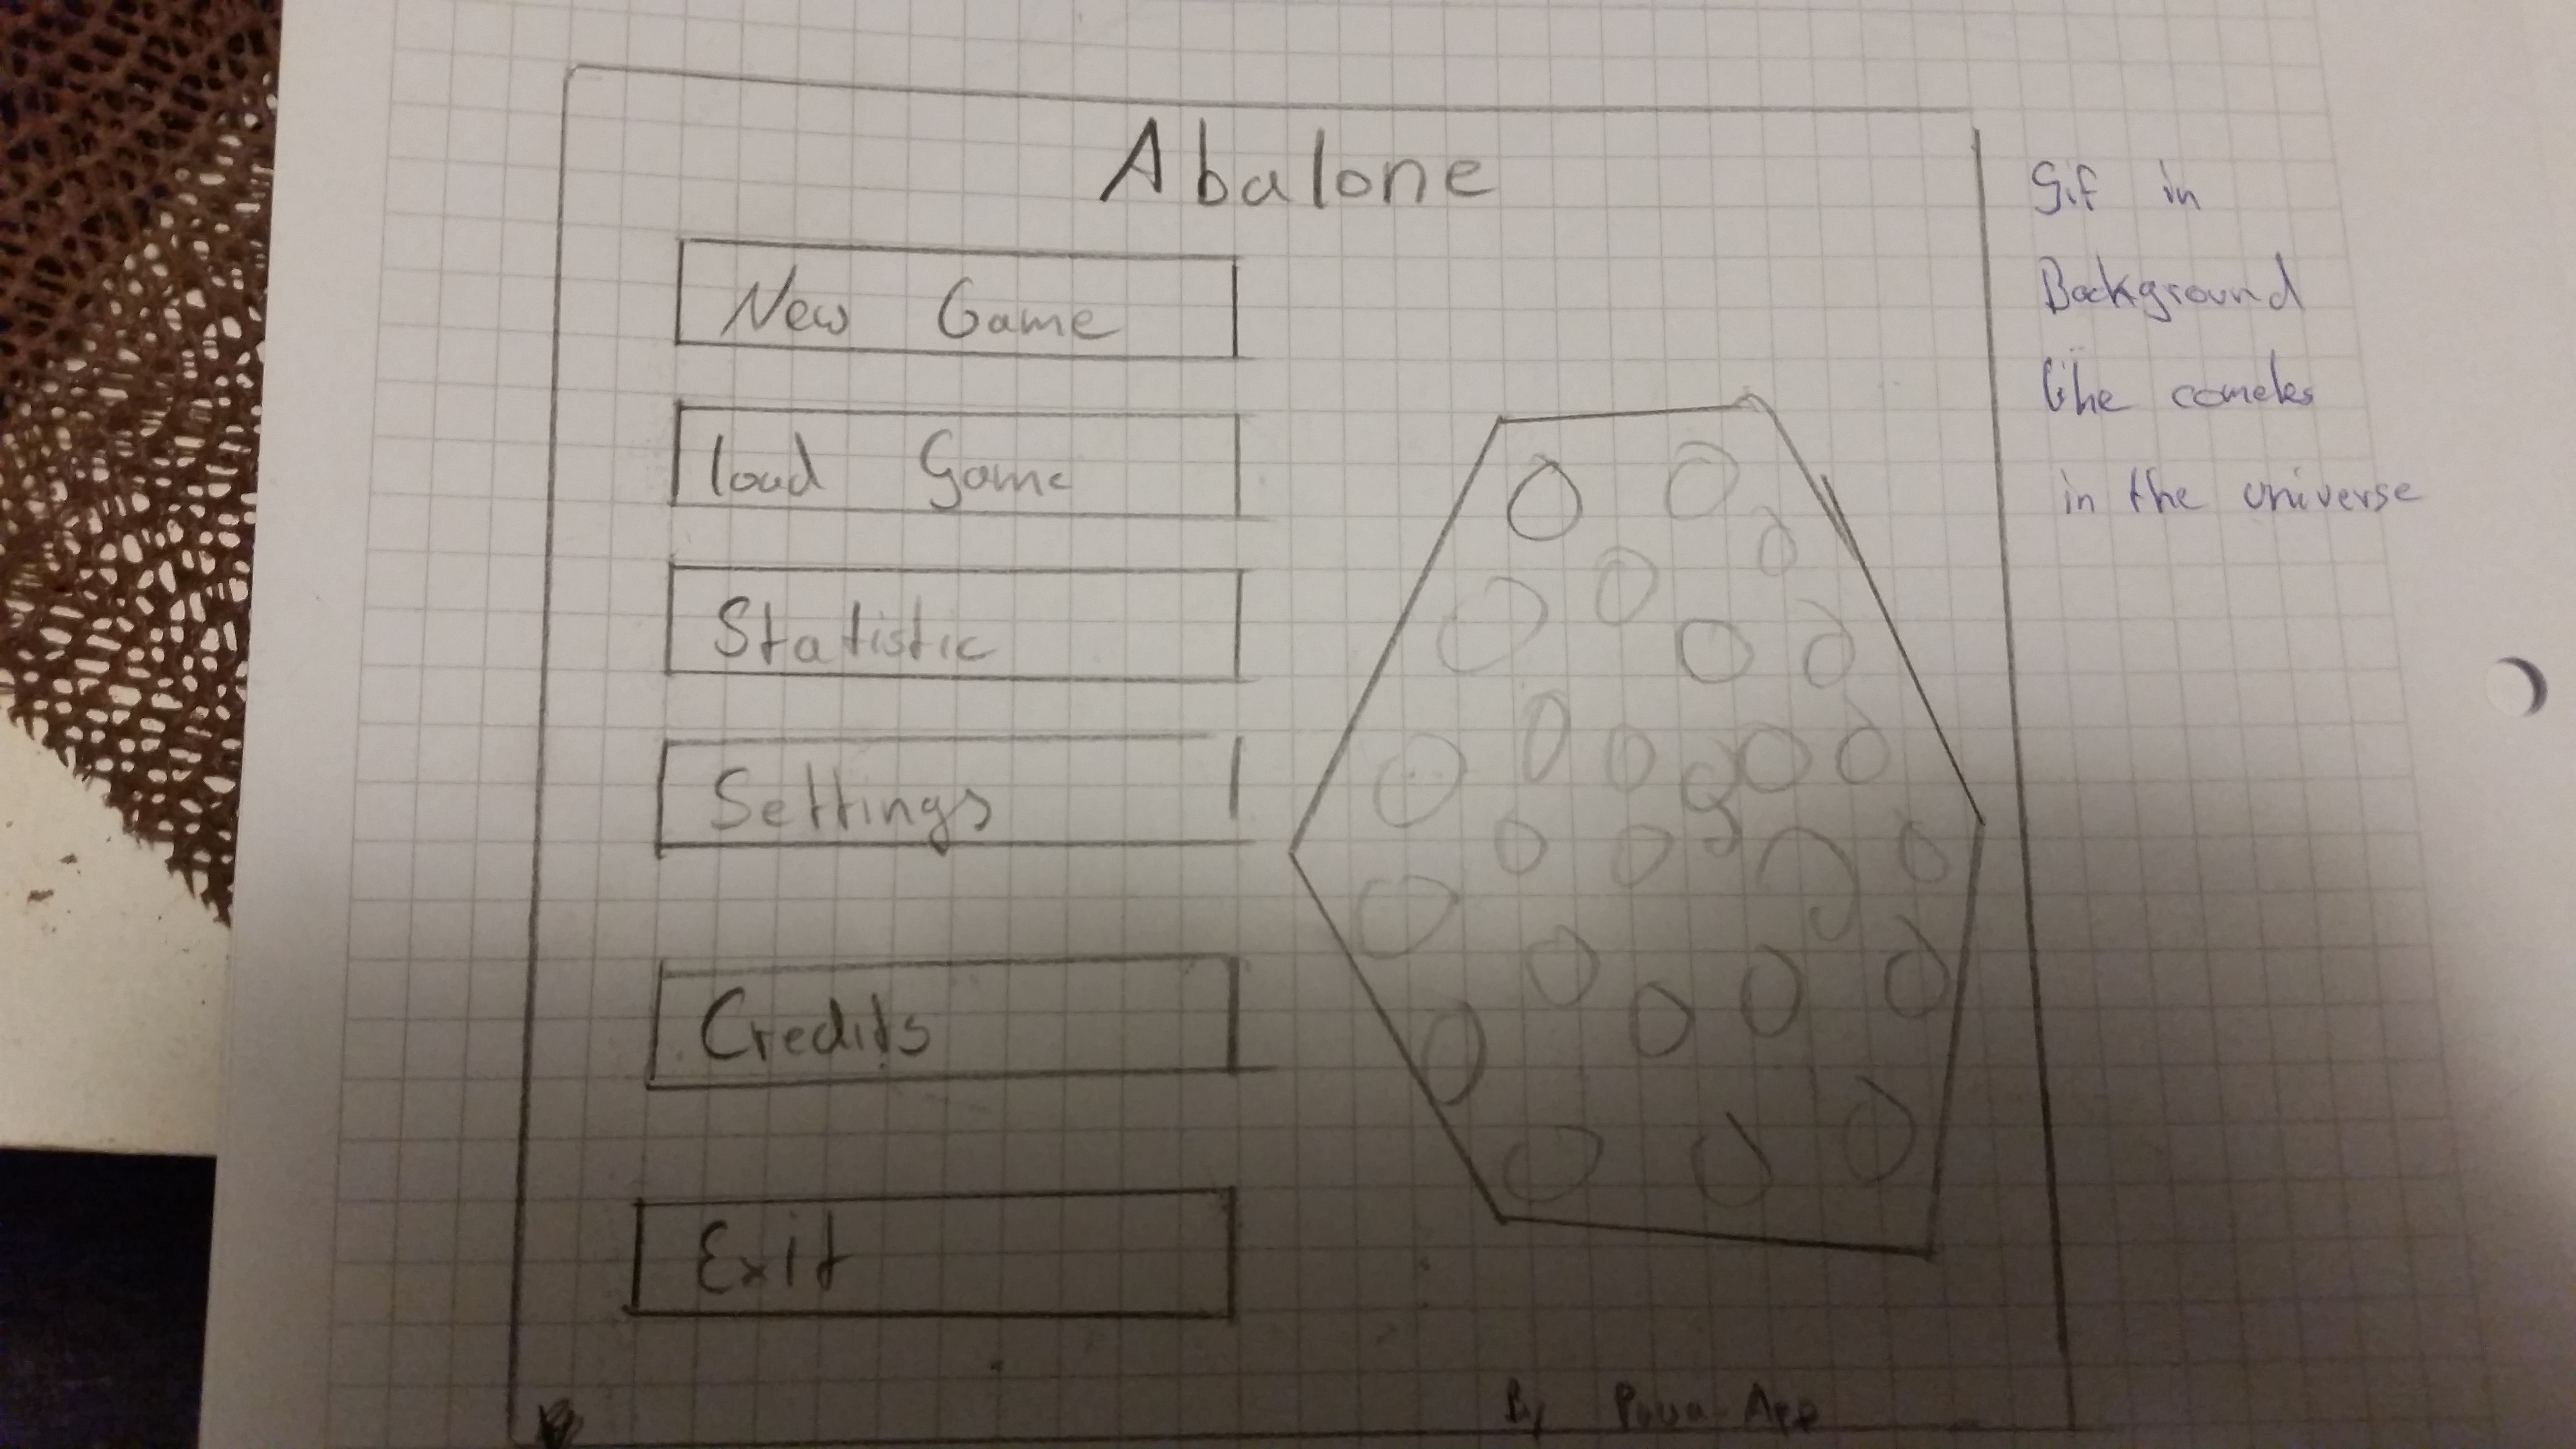 Abalone
New Game
load Game
Statistic
Settings
Credits
Exit
Gif in
Background
like cometes
in the universe
By